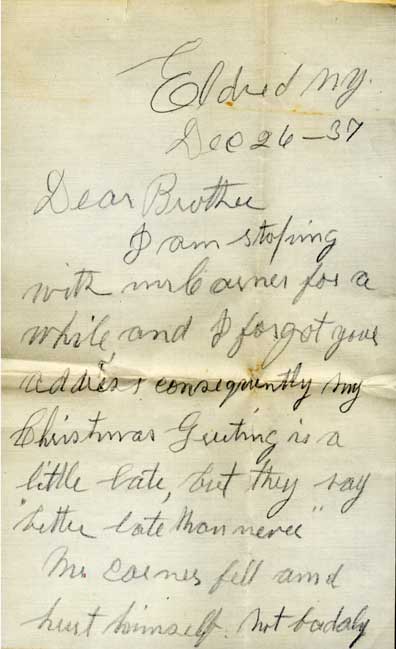 Eldred NY.
Dec 26-37
Dear Brother
I am stoping
with mr Carner for a
while, and I forgot your
address consequently my
Christmas Greeting is a
little late, but they say
"better late than never"
Mr Carner fell and
hurt himself. not badaly